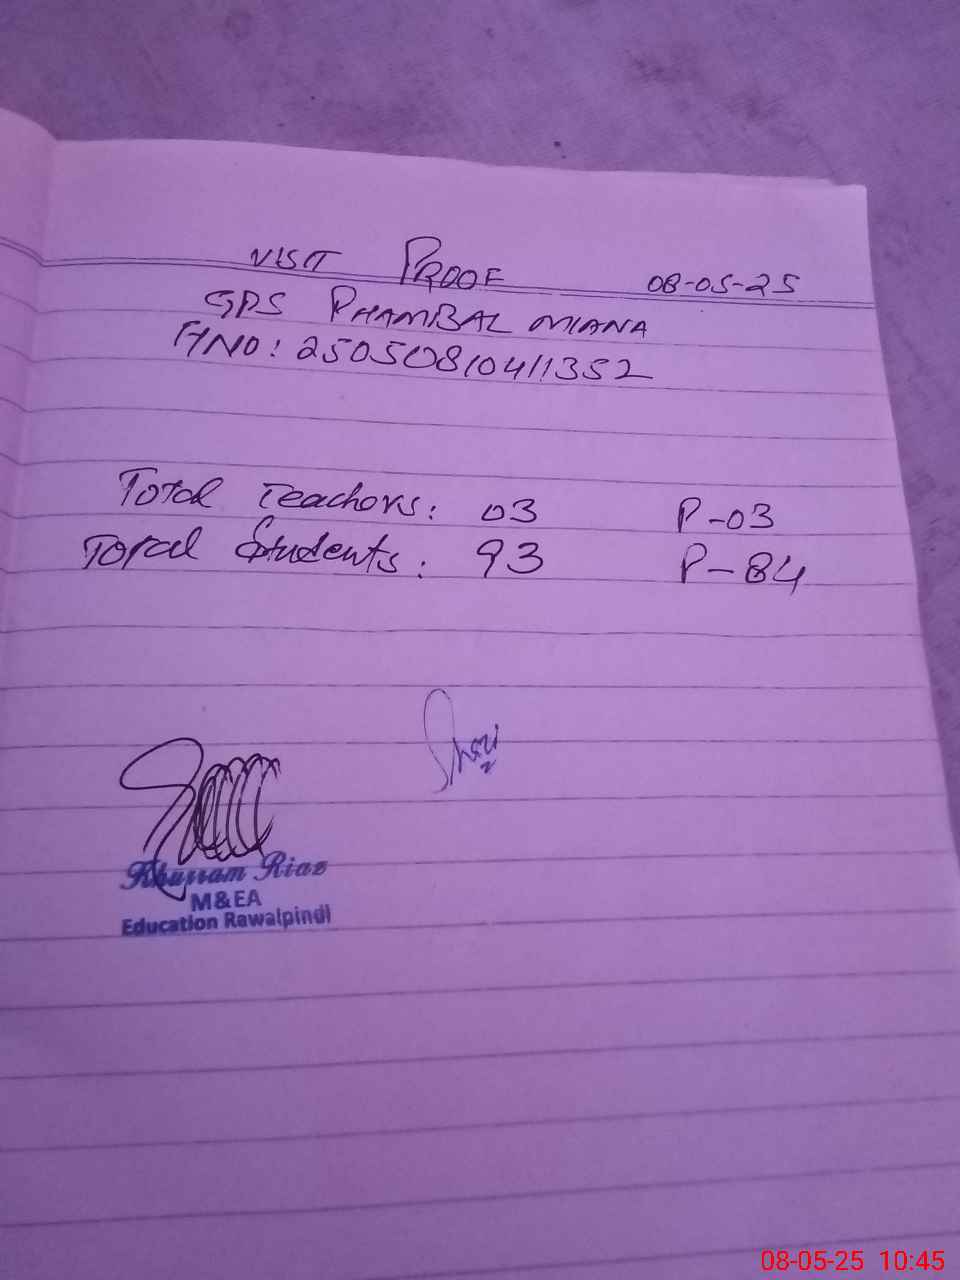 VISIT PROOF 08-05-25
GPS PHAMBAL MIANA
HNO: 25050810411352
Total Teachers: 03 P-03
Total Students: 93 P-84
Khurram Riaz
M&EA
Education Rawalpindi
08-05-25 10:45